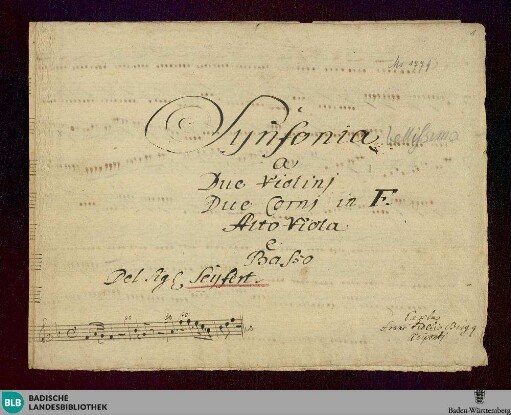 Synfonia
a
Due Violini
Due Corni in F.
Alto Viola
e
Basso
Del Sigl Seyfert.
BLB BADISCHE
LANDESBIBLIOTHEK
Baden-Württemberg